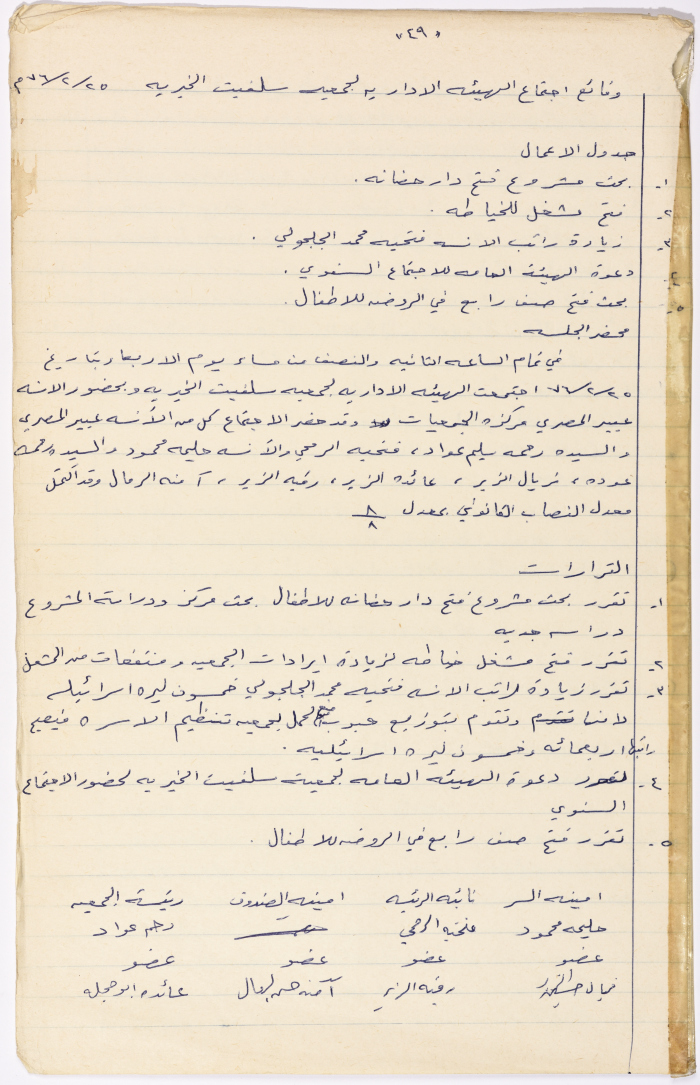 «٤٩»
وقائع اجتماع الهيئه الاداريه لجمعيه سلفيت الخيريه ٧٦/٢/٢٥م
جدول الاعمال
١- بحث مشروع فتح دار حضانه.
٢- فتح مشغل للخياطه.
٣- زيارة راتب الانسه فتحيه محمد الجلجولي.
٤- دعوة الهيئة العامه للاجتماع السنوي.
٥- بحث فتح صف رابع في الروضه للاطفال.
محضر الجلسه
في تمام الساعه الثانيه والنصف من مساء يوم الاربعاء بتاريخ
٧٦/٢/٢٥ اجتمعت الهيئه الاداريه لجمعيه سلفيت الخيريه وبحضور الانسه
عبير المصري مركزه الجمعيات وقد حضر الاجتماع كل من الآنسه عبير المصري
والسيده رحمه سليم عواد، فتحيه الرحبي والآنسه حليمه محمود والسيده رحمه
عوده، فريال الزير، عائده الزير، رقيه الزير، آمنه الرمال وقد اكتمل
معدل النصاب القانوني بمعدل ٨/٨
القرارات
١- تقرر بحث مشروع فتح دار حضانه للاطفال بحث مركز ودراسة المشروع
دراسه جديه
٢- تقرر فتح مشغل خياطه لزيادة ايرادات الجمعيه ومنتفعات من المشغل
٣- تقرر زيادة لراتب الانسه فتحيه محمد الجلجولي خمسون ليره اسرائيليه
لانها تقوم وتقوم بتوزيع حبوب منع الحمل لجمعيه تنظيم الاسره فيصبح
راتبها اربعمائه وخمسون ليره اسرائيليه.
٤- تقرر دعوة الهيئه العامه لجمعية سلفيت الخيريه لحضور الاجتماع
السنوي
٥- تقرر فتح صف رابع في الروضه للاطفال.
امينه السر نائبه الرئيسه امينه الصندوق رئيسة الجمعيه
حليمه محمود فتحيه الرحبي رحمه عواد
عضو عضو عضو عضو
فريال رقيه الزير آمنه الرمال عائده ابو حجله